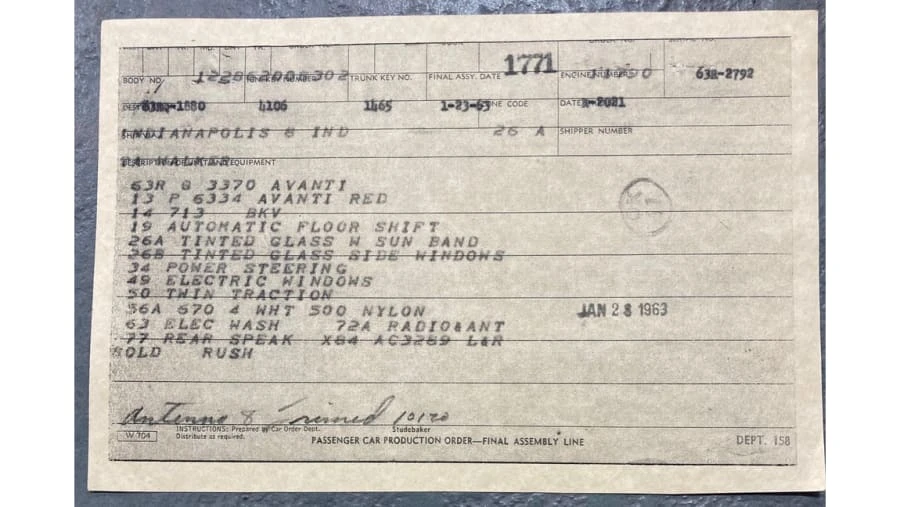 1771
BODY NO. TRUNK KEY NO. FINAL ASSY. DATE ENGINE NUMBER 63R-2792
4106 1465 1-23-63 CODE DATE -2021
INDIANAPOLIS 8 IND 26 A SHIPPER NUMBER
EQUIPMENT
63R Q 3370 AVANTI
13 P 6334 AVANTI RED
14 713 BKV
19 AUTOMATIC FLOOR SHIFT
26A TINTED GLASS W SUN BAND
26B TINTED GLASS SIDE WINDOWS
34 POWER STEERING
49 ELECTRIC WINDOWS
50 TWIN TRACTION
56A 670 4 WHT 500 NYLON JAN 28 1963
63 ELEC WASH 72A RADIO&ANT
77 REAR SPEAK X84 AC3289 L&R
SOLD RUSH
Antenna &
W 704 INSTRUCTIONS: Prepared by Car Order Dept. Studebaker
Distribute as required.
PASSENGER CAR PRODUCTION ORDER—FINAL ASSEMBLY LINE DEPT. 158